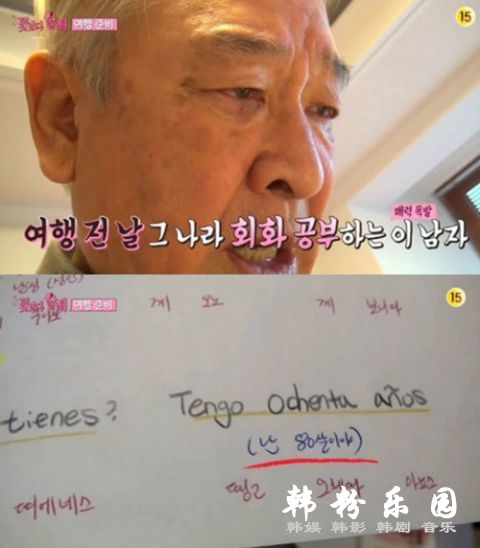 꽃보다 할배 여행 준비 15
매력 폭발
여행 전 날 그 나라 회화 공부하는 이 남자
꽃보다 할배 여행 준비 15
tienes? Tengo Ochenta años
(난 80살이야)
띠에네스 땡고 오첸따
韩粉乐园
韩娱 韩影 韩剧 音乐